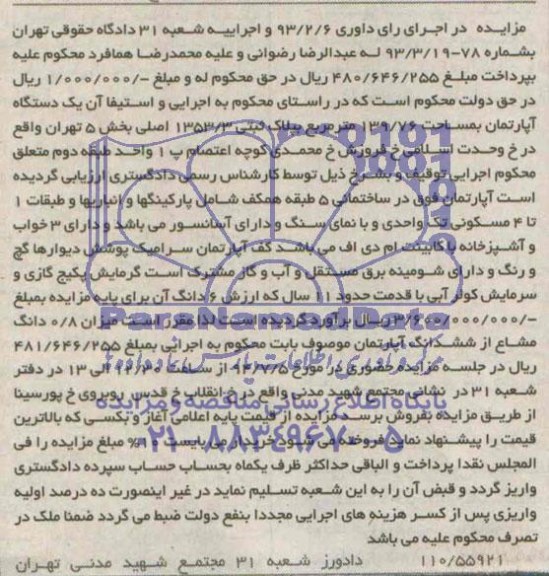 مزایده در اجرای رای داوری ۹۳/۲/۶ و اجراییه شعبه ۳۱ دادگاه حقوقی تهران
بشماره ۷۸-۹۳/۳/۱۹ له عبدالرضا رضوانی و علیه محمدرضا همافرد محکوم علیه
بپرداخت مبلغ ۴۸۰/۶۴۶/۲۵۵ ریال در حق محکوم له و مبلغ -/۱/۰۰۰/۰۰۰ ریال
در حق دولت محکوم است که در راستای محکوم به اجرایی و استیفا آن یک دستگاه
آپارتمان بمساحت ۱۳۹/۷۶ مترمربع پلاک ثبتی ۱۳۵۳/۳ اصلی بخش ۵ تهران واقع
در خ وحدت اسلامی خ فروزش خ محمدی کوچه اعتصام پ ۱ واحد طبقه دوم متعلق
محکوم اجرایی توقیف و بشرح ذیل توسط کارشناس رسمی دادگستری ارزیابی گردیده
است آپارتمان فوق در ساختمانی ۵ طبقه همکف شامل پارکینگها و انباریها و طبقات ۱
تا ۴ مسکونی تک واحدی و با نمای سنگ و دارای آسانسور می باشد و دارای ۳ خواب
و آشپزخانه با کابینت ام دی اف می باشد کف آپارتمان سرامیک پوشش دیوارها گچ
و رنگ و دارای شومینه برق مستقل و آب و گاز مشترک است گرمایش پکیج گازی و
سرمایش کولر آبی با قدمت حدود ۱۱ سال که ارزش ۶ دانگ آن برای پایه مزایده بمبلغ
-/۳/۶۰۰/۰۰۰/۰۰۰ ریال برآورد گردیده است لذا مقرر است میزان ۰/۸ دانگ
مشاع از ششدانگ آپارتمان موصوف بابت محکوم به اجرائی بمبلغ ۴۸۱/۶۴۶/۲۵۵
ریال در جلسه مزایده حضوری در مورخ ۹۴/۷/۵ از ساعت الی ۱۳ در دفتر
شعبه ۳۱ در نشانی مجتمع شهید مدنی واقع در خ انقلاب خ قدس روبروی خ پورسینا
از طریق مزایده بفروش برسد مزایده از قیمت پایه اعلامی آغاز و بکسی که بالاترین
قیمت را پیشنهاد نماید فروخته می شود خریدار می بایست ۱۰% مبلغ مزایده را فی
المجلس نقدا پرداخت و الباقی حداکثر ظرف یکماه بحساب حساب سپرده دادگستری
واریز گردد و قبض آن را به این شعبه تسلیم نماید در غیر اینصورت ده درصد اولیه
واریزی پس از کسر هزینه های اجرایی مجددا بنفع دولت ضبط می گردد ضمنا ملک در
تصرف محکوم علیه می باشد
۱۱۰/۵۵۹۲۱ دادورز شعبه ۳۱ مجتمع شهید مدنی تهران
ParsNamadData
پایگاه اطلاع رسانی مناقصه و مزایده
۰۲۱-۸۸۳۴۹۶۷۰-۵